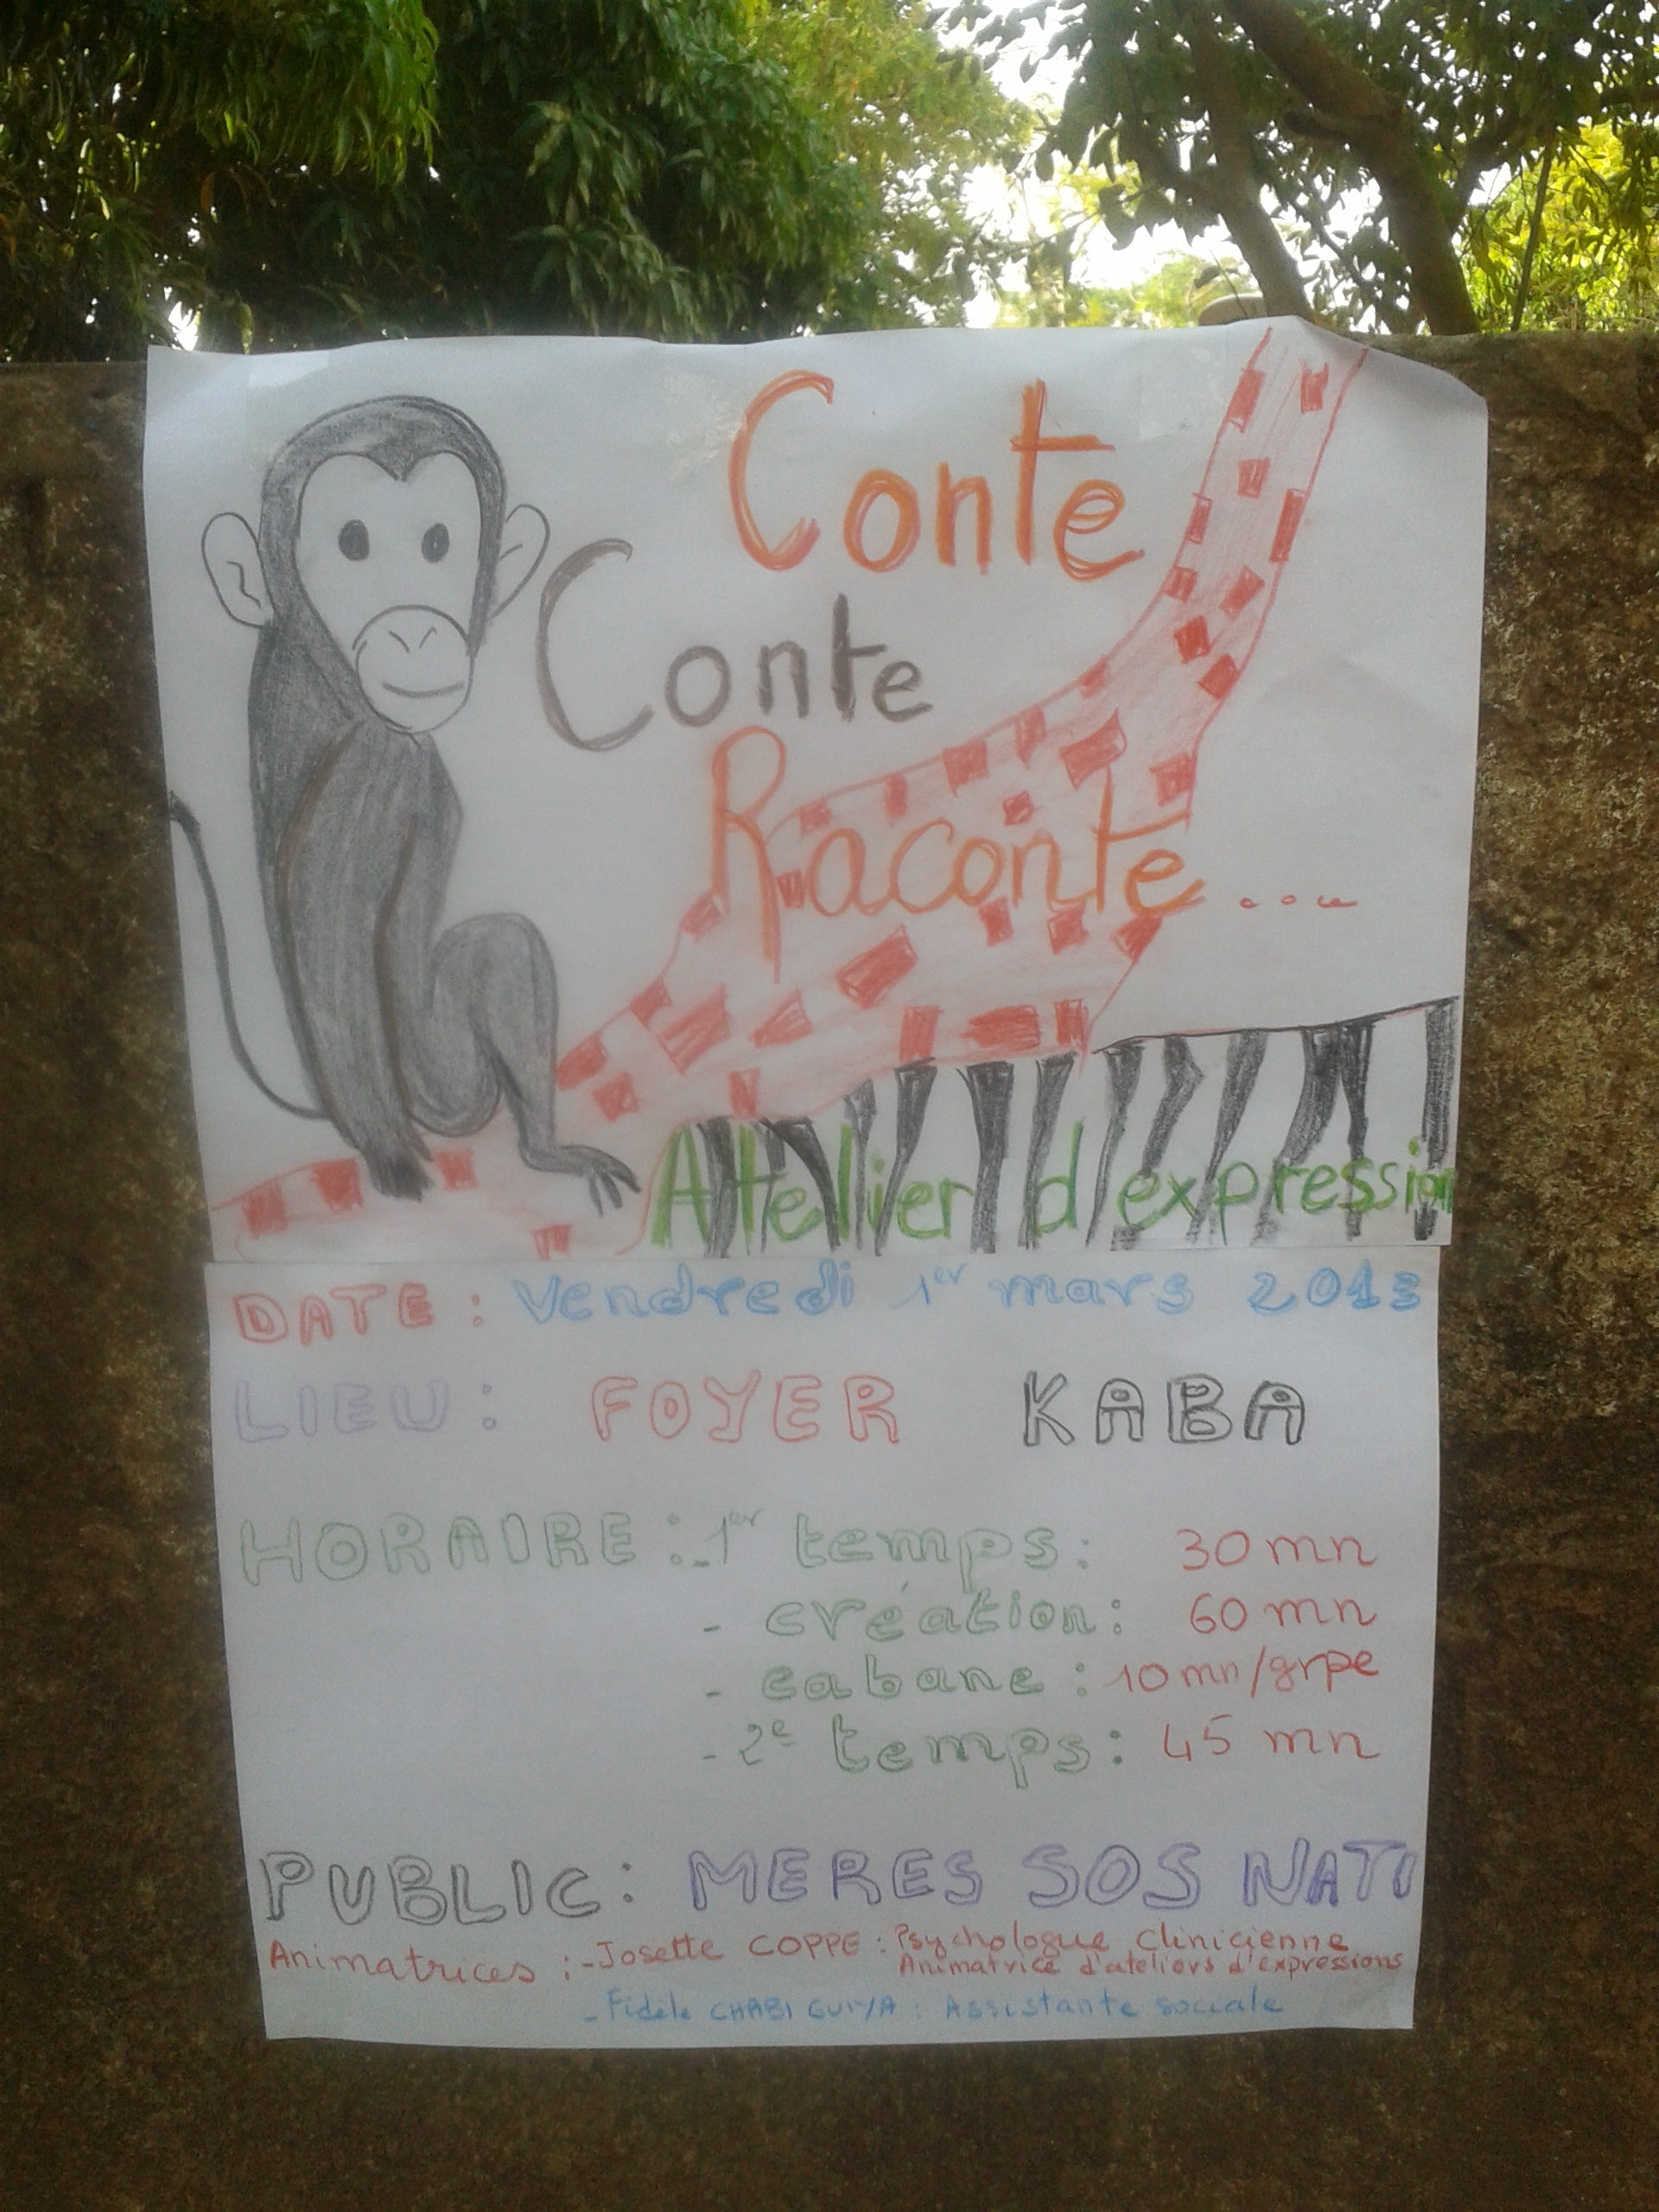 Conte
Conte
Raconte...
Attelier d'expression
DATE : Vendredi 1er mars 2013
LIEU : FOYER KABA
HORAIRE : - 1er temps : 30 mn
- création : 60 mn
- cabane : 10 mn/grpe
- 2e temps : 45 mn
PUBLIC : MERES SOS NATI
Animatrices : - Josette COPPE : Psychologue Clinicienne
Animatrice d'ateliers d'expressions
- Fidèle CHABI : Assistante sociale